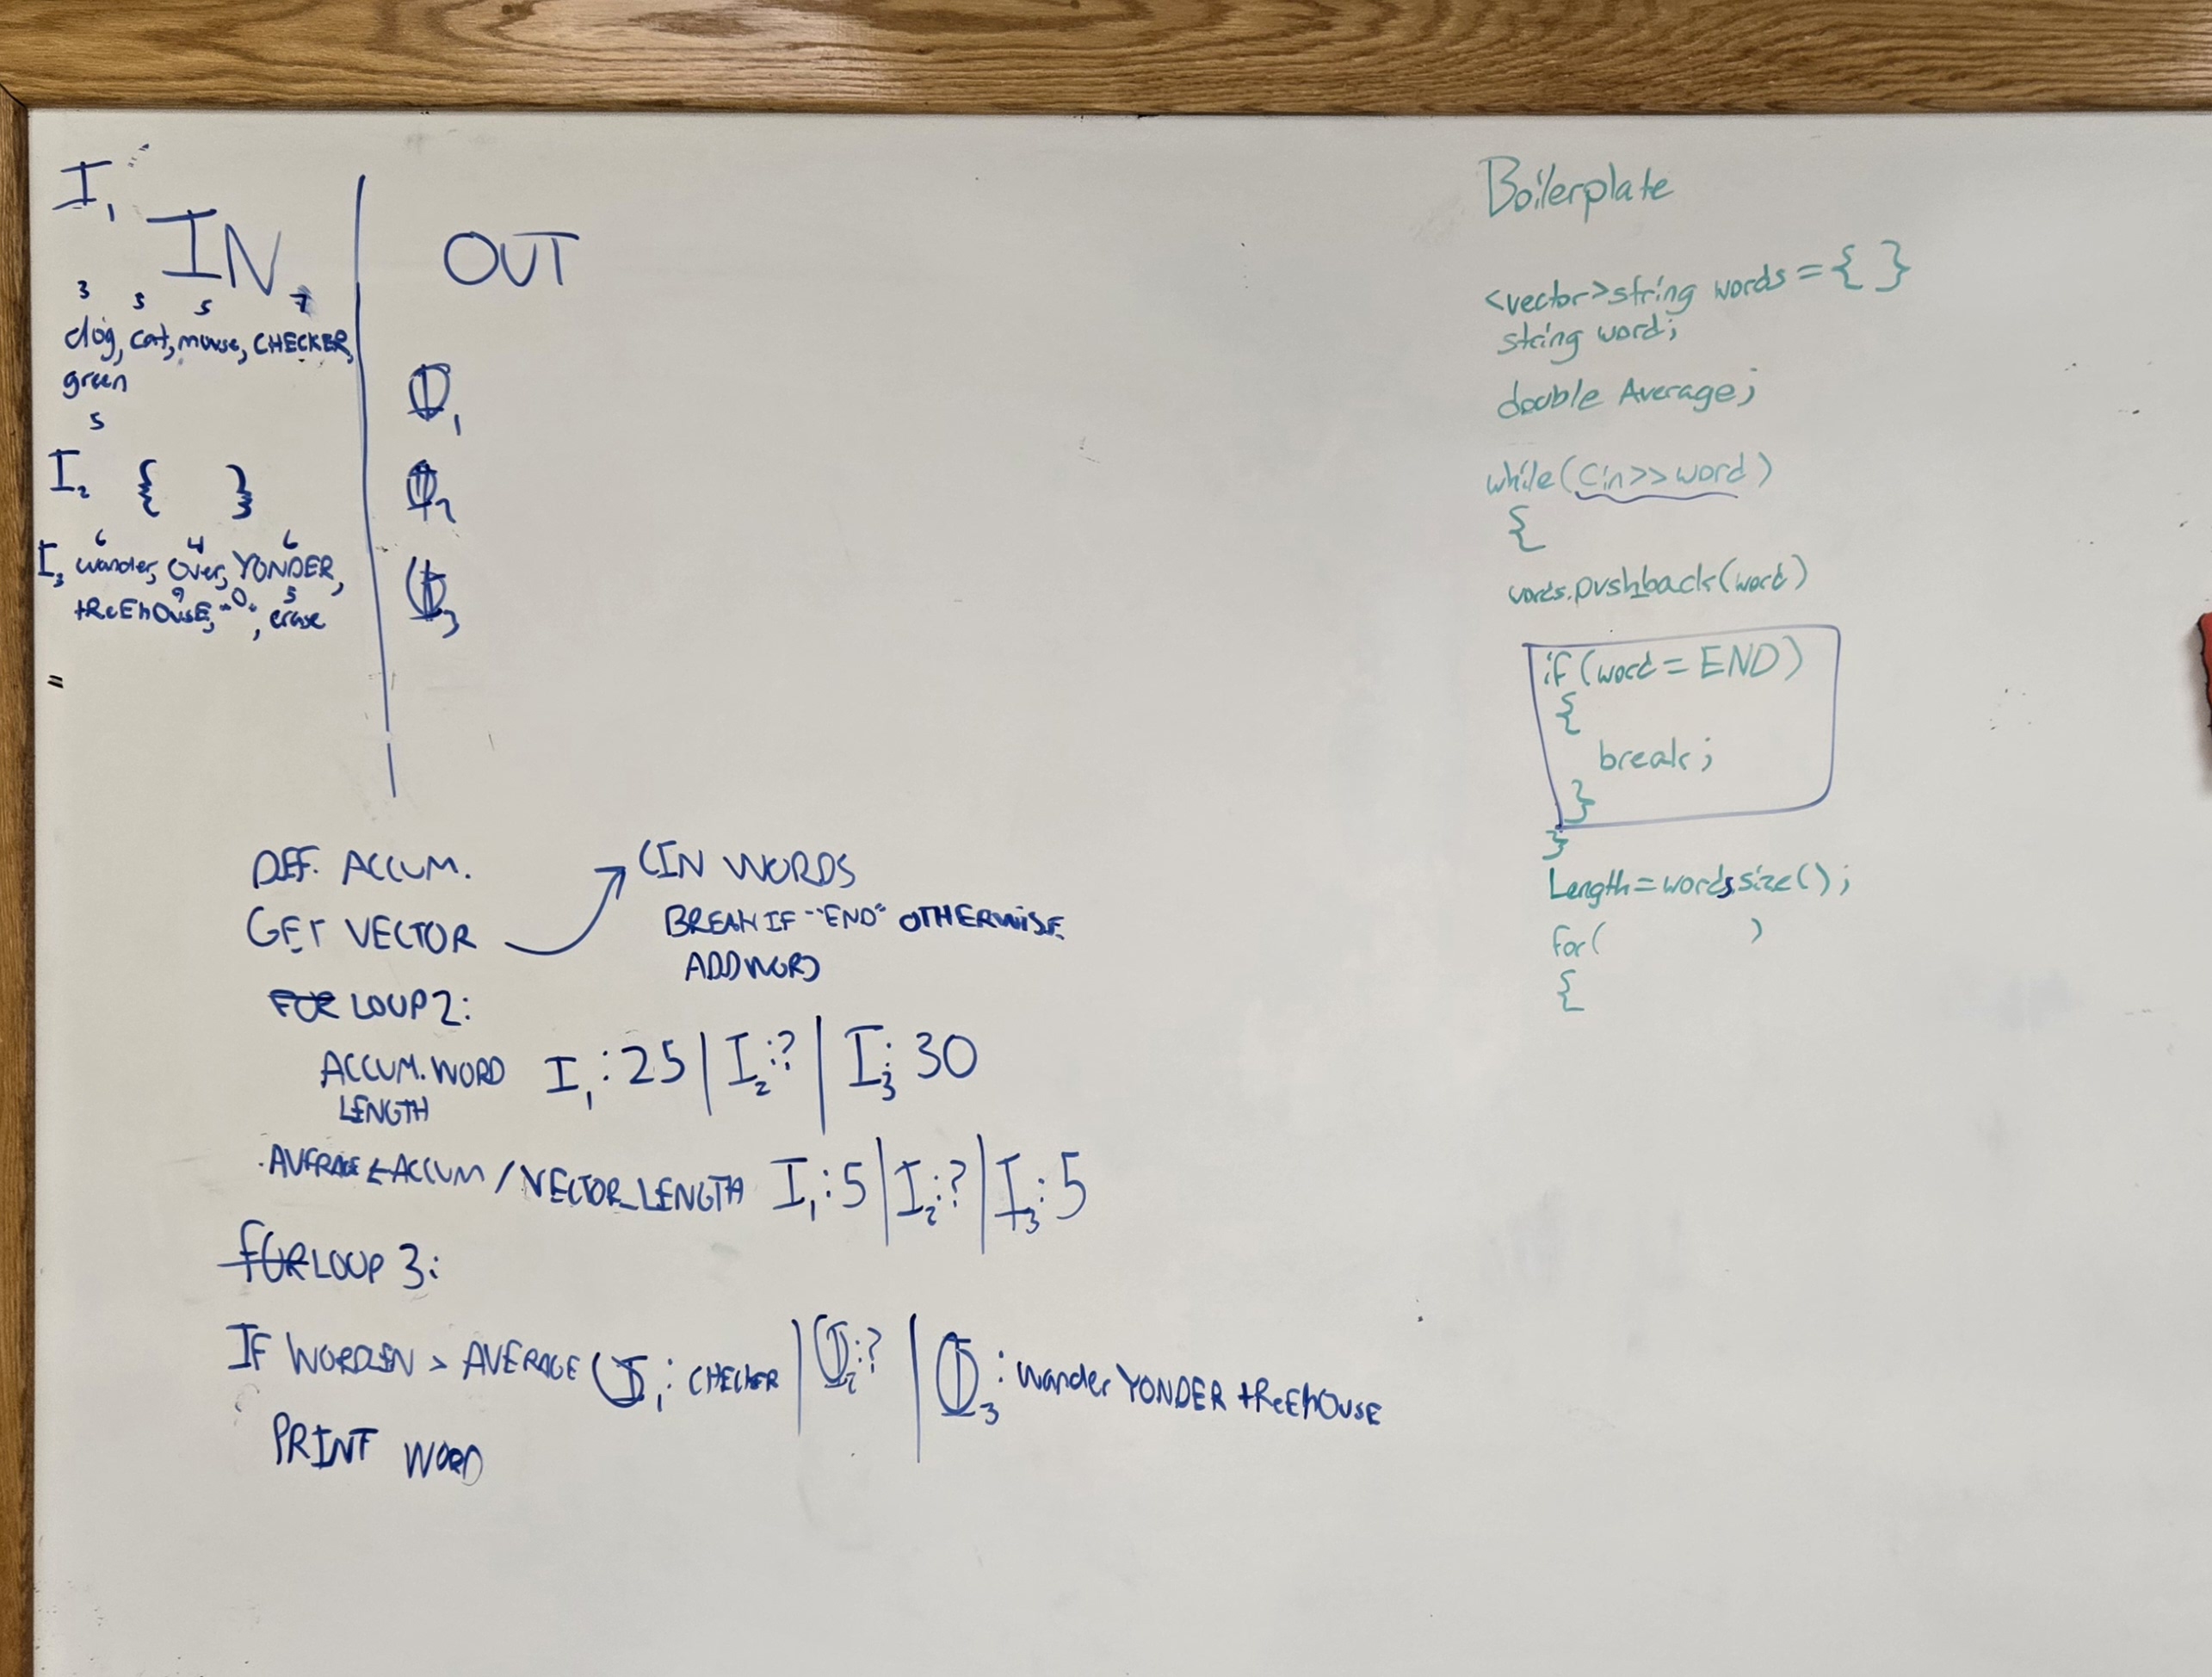 I1
IN
OUT
3 3 5 7
dog, cat, mouse, CHECKER,
green
5
I2 { }
6 4 6
I3 wander, Over, YONDER,
9 0 5
tReEhOusE, "", erase
=
O1
O2
O3
DEF. ACCUM.
GET VECTOR
CIN WORDS
BREAK IF "END" OTHERWISE
ADD WORD
FOR LOOP 2:
ACCUM. WORD
LENGTH
I1: 25 | I2:? | I3: 30
AVERAGE ← ACCUM / VECTOR_LENGTH I1: 5 | I2:? | I3: 5
FOR LOOP 3:
IF WORDLEN > AVERAGE O1: CHECKER | O2:? | O3: wander YONDER tReEhOusE
PRINT WORD
Boilerplate
<vector>string words = { }
string word;
double Average;
while(cin>>word)
{
words.pushback(word)
if(word = END)
{
break;
}
}
Length = words.size();
for( )
{